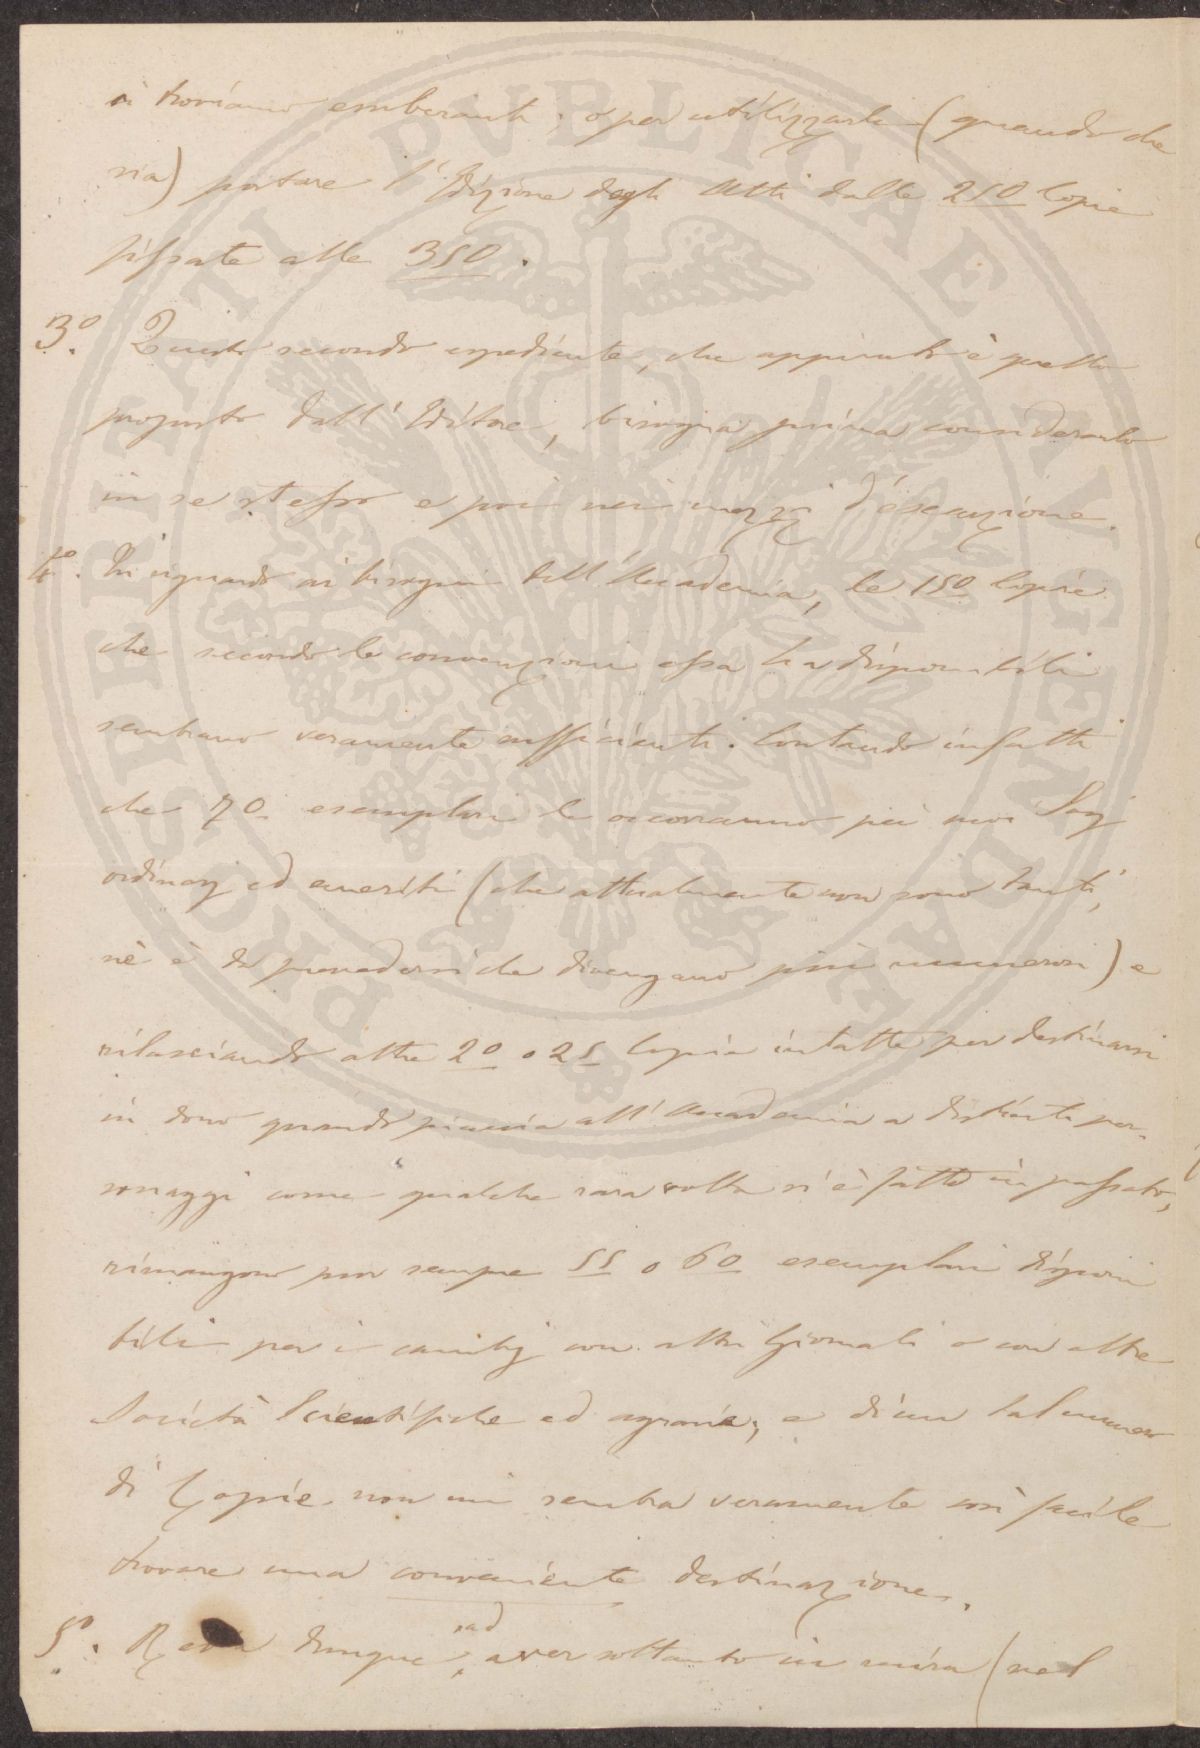 si troviamo esuberanti; o per utilizzarle (quando che
sia) portare l'Edizione degli Atti dalle 250 Copie
fissate alle 350.
3.º Questo secondo espediente, che appunto è quello
proposto dall'Editore, bisogna prima considerarlo
in se stesso e poi nei mezzi d'esecuzione.
4.º In riguardo ai bisogni dell'Accademia, le 150 Copie
che secondo le convenzioni essa ha disponibili
sembrano veramente sufficienti. Contando infatti
che 70 esemplari le occorranno pei suoi Socj
ordinarj ed emeriti (che attualmente non sono tanti,
nè è da prevedersi che divengano più numerosi) e
rilasciando altre 20 o 25 Copie intatte per destinarsi
in dono quando piaccia all'Accademia a distinti per-
sonaggi come qualche rara volta si è fatto in passato,
rimangono pur sempre 55 o 60 esemplari disponi
bili per i cambj con altri Giornali o con altre
Società Scientifiche ed agrarie; e di un tal numero
di Copie non mi sembra veramente così facile
trovare una conveniente destinazione.
5.º Resta dunque, ad aver soltanto in mira (nel
PROSPERITATI PVBLICAE AVGENDAE